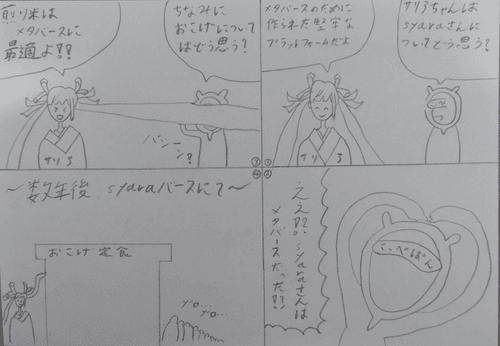 ①
ちゃんは
syaraさんに
ついてどう思う?
メタバースのために
作られた堅牢な
プラットフォームだよ
②
こっぺぱん
ええ!?syaraさんは
メタバースだった!?
③
ちなみに
おこげについて
はどう思う?
煎り米は
メタバースに
最適よ!?
④
〜数年後、syaraバースにて〜
おこげ 定食
ゾロ…
ゾロ…